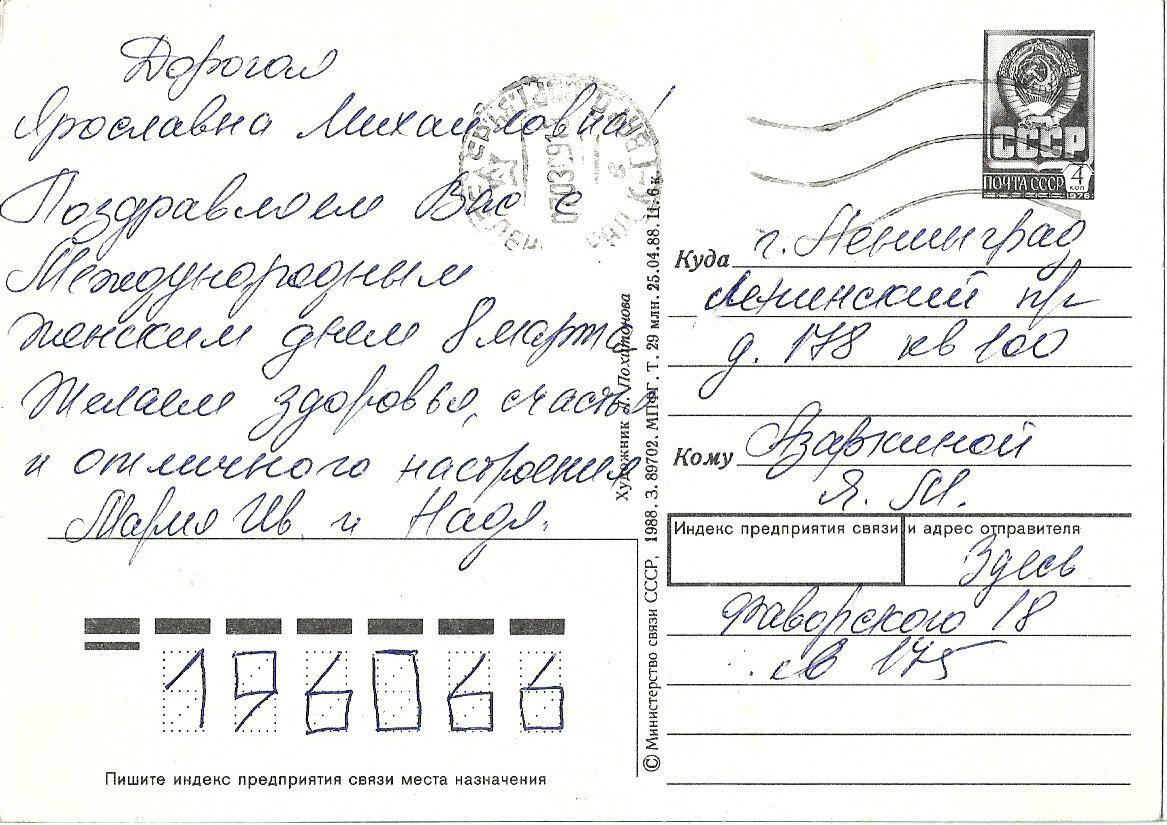 Дорогая
Ярославна Михайловна!
Поздравляем Вас с
Международным
женским днем 8 марта
Желаем здоровья, счастья
и отличного настроения
Мария Ив. и Надя.
СССР
ПОЧТА СССР
4
КОП
1976
Куда г. Ленинград
Ленинский пр
д. 178 кв 100
Кому Азаркиной
Я. М.
Индекс предприятия связи и адрес отправителя
Здесь
Фаворского 18
кв 175
196066
Пишите индекс предприятия связи места назначения
© Министерство связи СССР, 1988. З. 89702. МПФГ. Т. 29 млн. 25.04.88. Ц. 6 к.
Художник Л. Похитонова